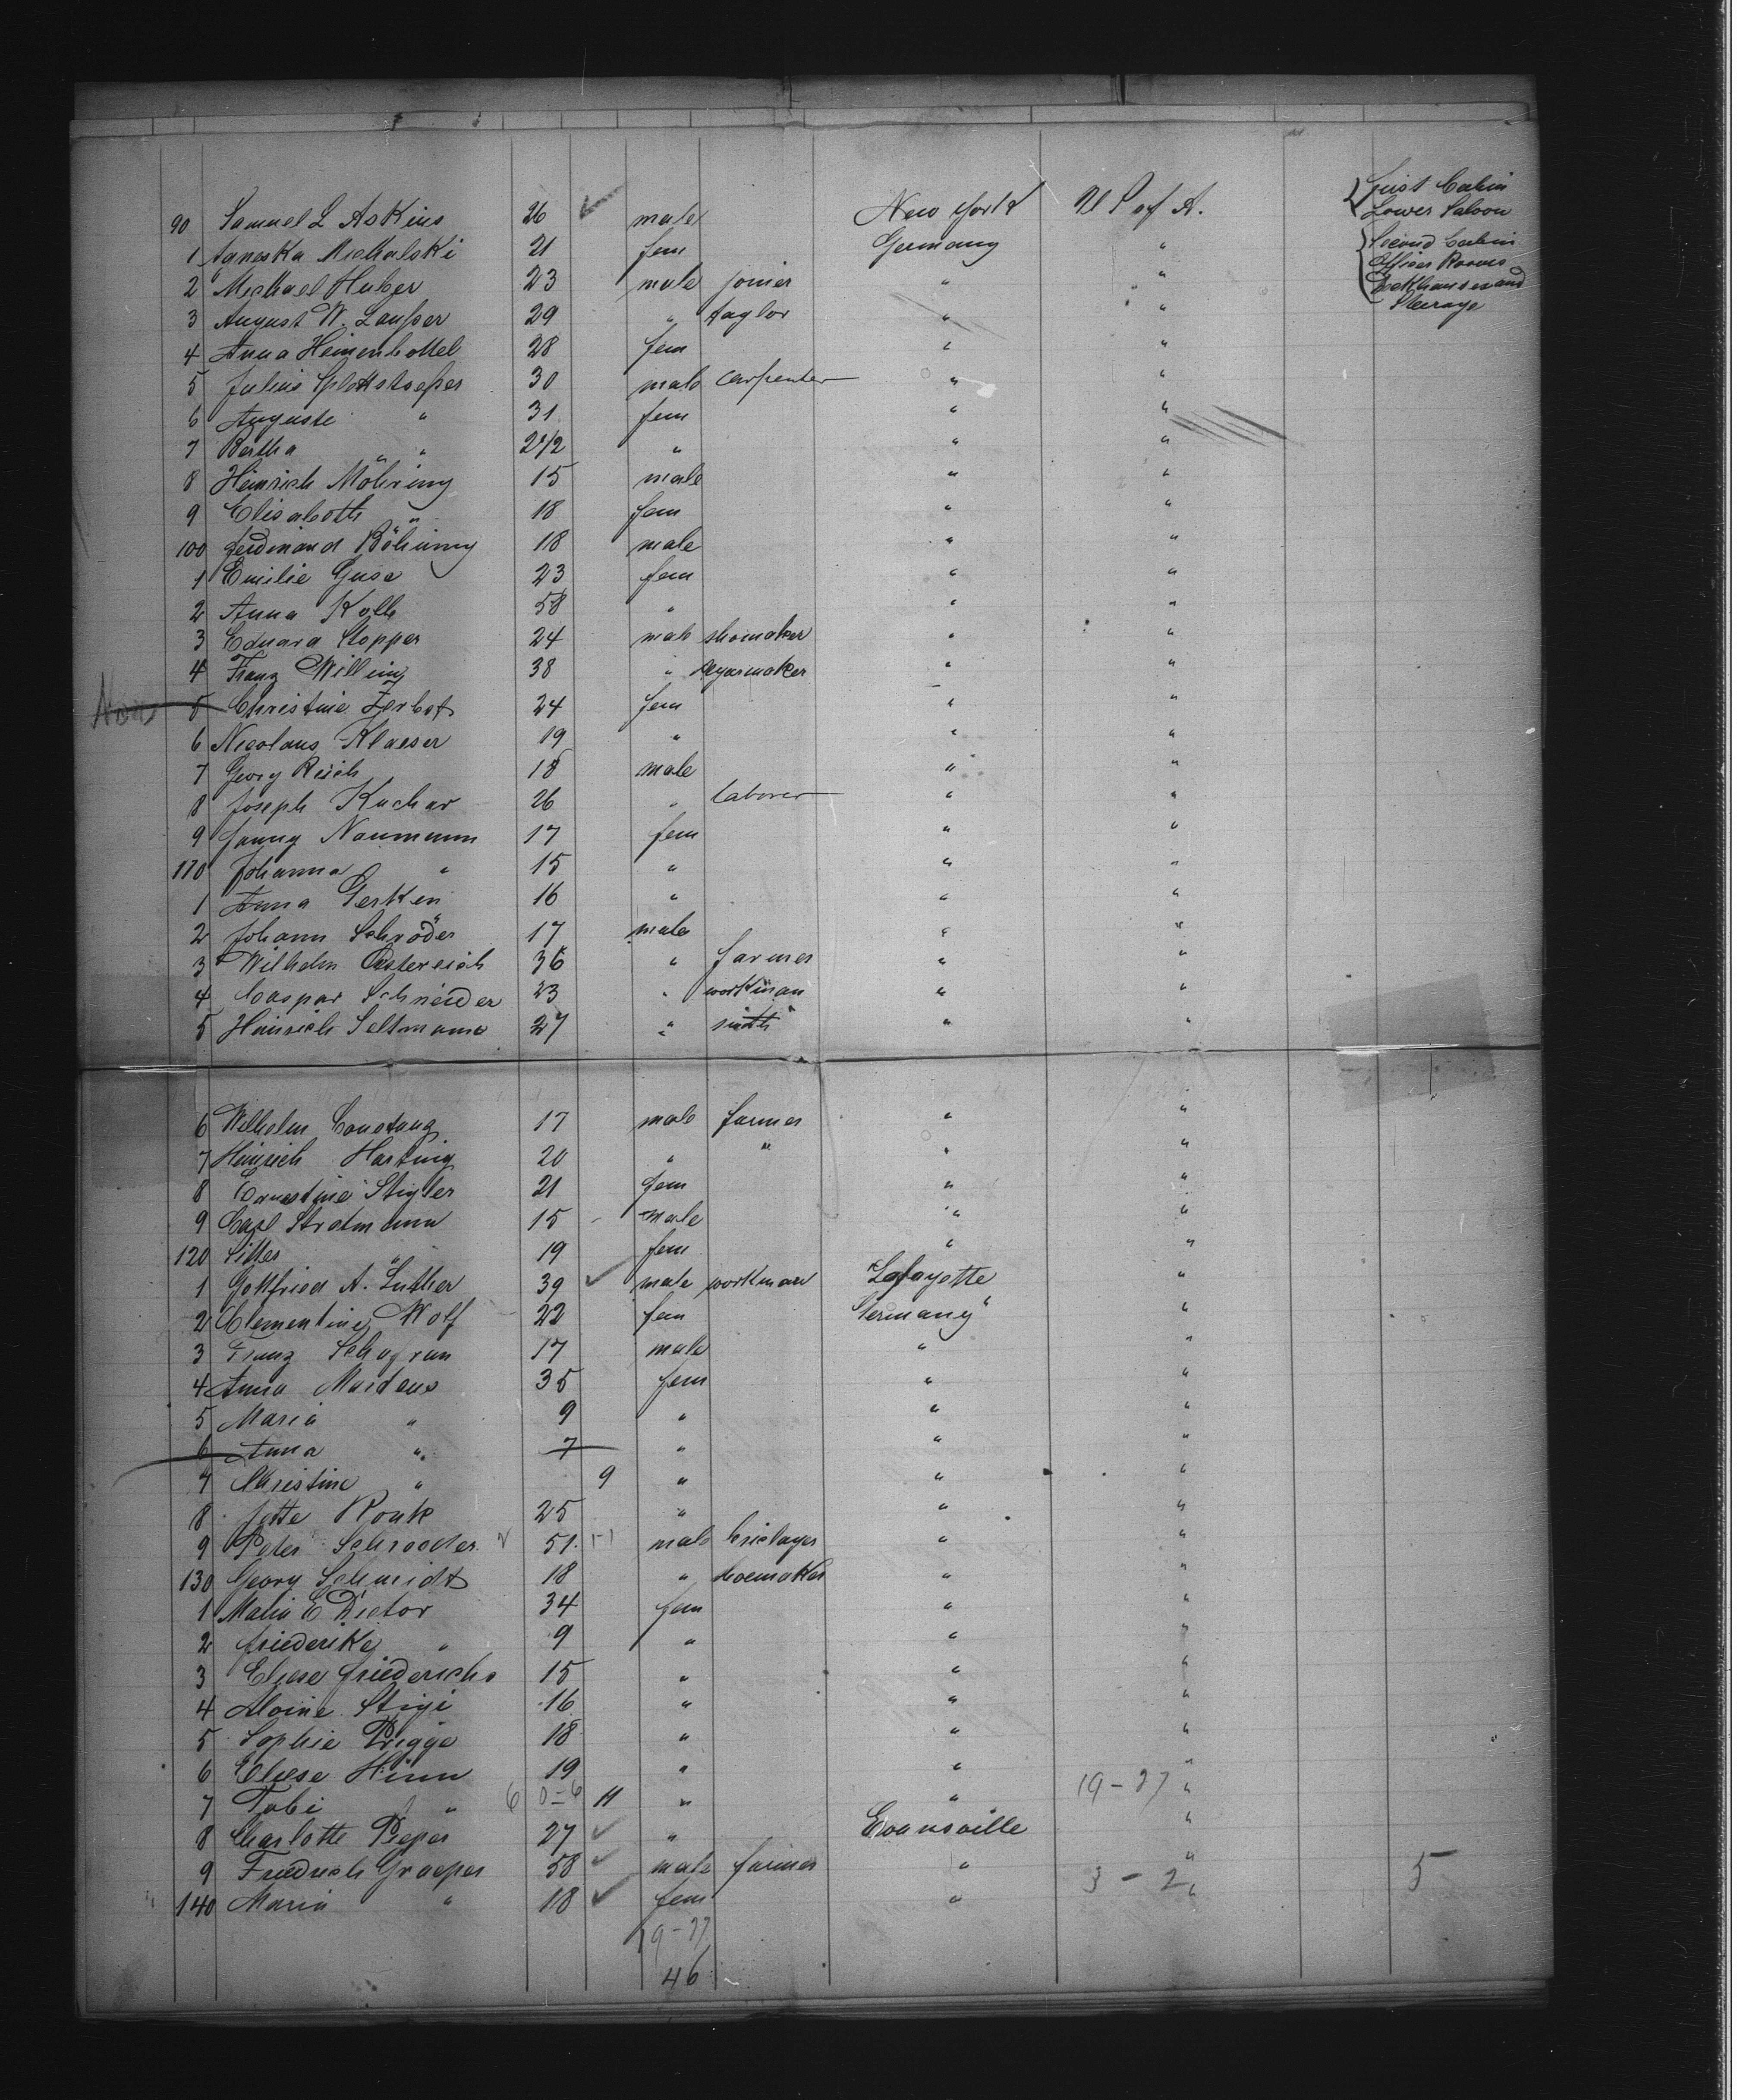 First Cabin
Lower Saloon
Second Cabin
Officer Rooms
and
Steerage
90 Samuel L Askins 26 ✓ male New York U S of A.
1 Agneska Michalski 21 fem Germany "
2 Michael Huber 23 male joiner " "
3 August W. 29 " taylor " "
4 Anna Heinenbottel 28 fem " "
5 Julius 30 male carpenter " "
6 Auguste " 31 fem " "
7 Bertha " 2 1/2 " " "
8 Heinrich Möhring 15 male " "
9 Elisabeth " 18 fem " "
100 Ferdinand Böhring 18 male " "
1 Emilie Guse 23 fem " "
2 Anna Kolb 58 " " "
3 Eduard Stopper 24 male shomaker " "
4 Franz Willing 38 " segarmaker " "
Non 5 Christine Zerbst 24 fem " "
6 Nicolaus Klaeser 19 " " "
7 Georg Reich 18 male " "
8 Joseph Kuchar 26 " laborer " "
9 Fanny Naumann 17 fem " "
110 Johanna " 15 " " "
1 Anna Gerken 16 " " "
2 Johann Schröder 17 male " "
3 Wilhelm Oestereich 36 " farmer " "
4 Caspar Schneider 23 " workman " "
5 Heinrich Seltmann 27 " smith " "
6 Wilhelm Constanz 17 male farmer " "
7 Heinrich Harting 20 " " " "
8 Ernestine Stigler 21 fem " "
9 Carl Stratmann 15 male " "
120 " 19 fem " "
1 Gottfried A. Luther 39 ✓ male workman Lafayette "
2 Clementine Wolf 22 fem Germany "
3 Franz Schafran 17 male " "
4 Anna Mardens 35 fem " "
5 Maria " 9 " " "
6 Anna " 7 " " "
7 Christine " 9 " " "
8 Jette Ronk 25 " " "
9 Peter Schroeder 51 male briclayer " "
130 Georg Schmidt 18 " shoemaker " "
1 Maria E Dietor 34 fem " "
2 Friederike " 9 " " "
3 Eliese Friederichs 15 " " "
4 Alvine Stige 16 " " "
5 Sophie Prigge 18 " " "
6 Eliese Hinn 19 " " "
7 Tobi " 6 0=6 11 " " 19-27 "
8 Charlotte Pieper 27 ✓ " Evansville "
9 Friedrich Graeper 58 ✓ male farmer " "
140 Maria " 18 ✓ fem " 3-2 " 5
19-27
46